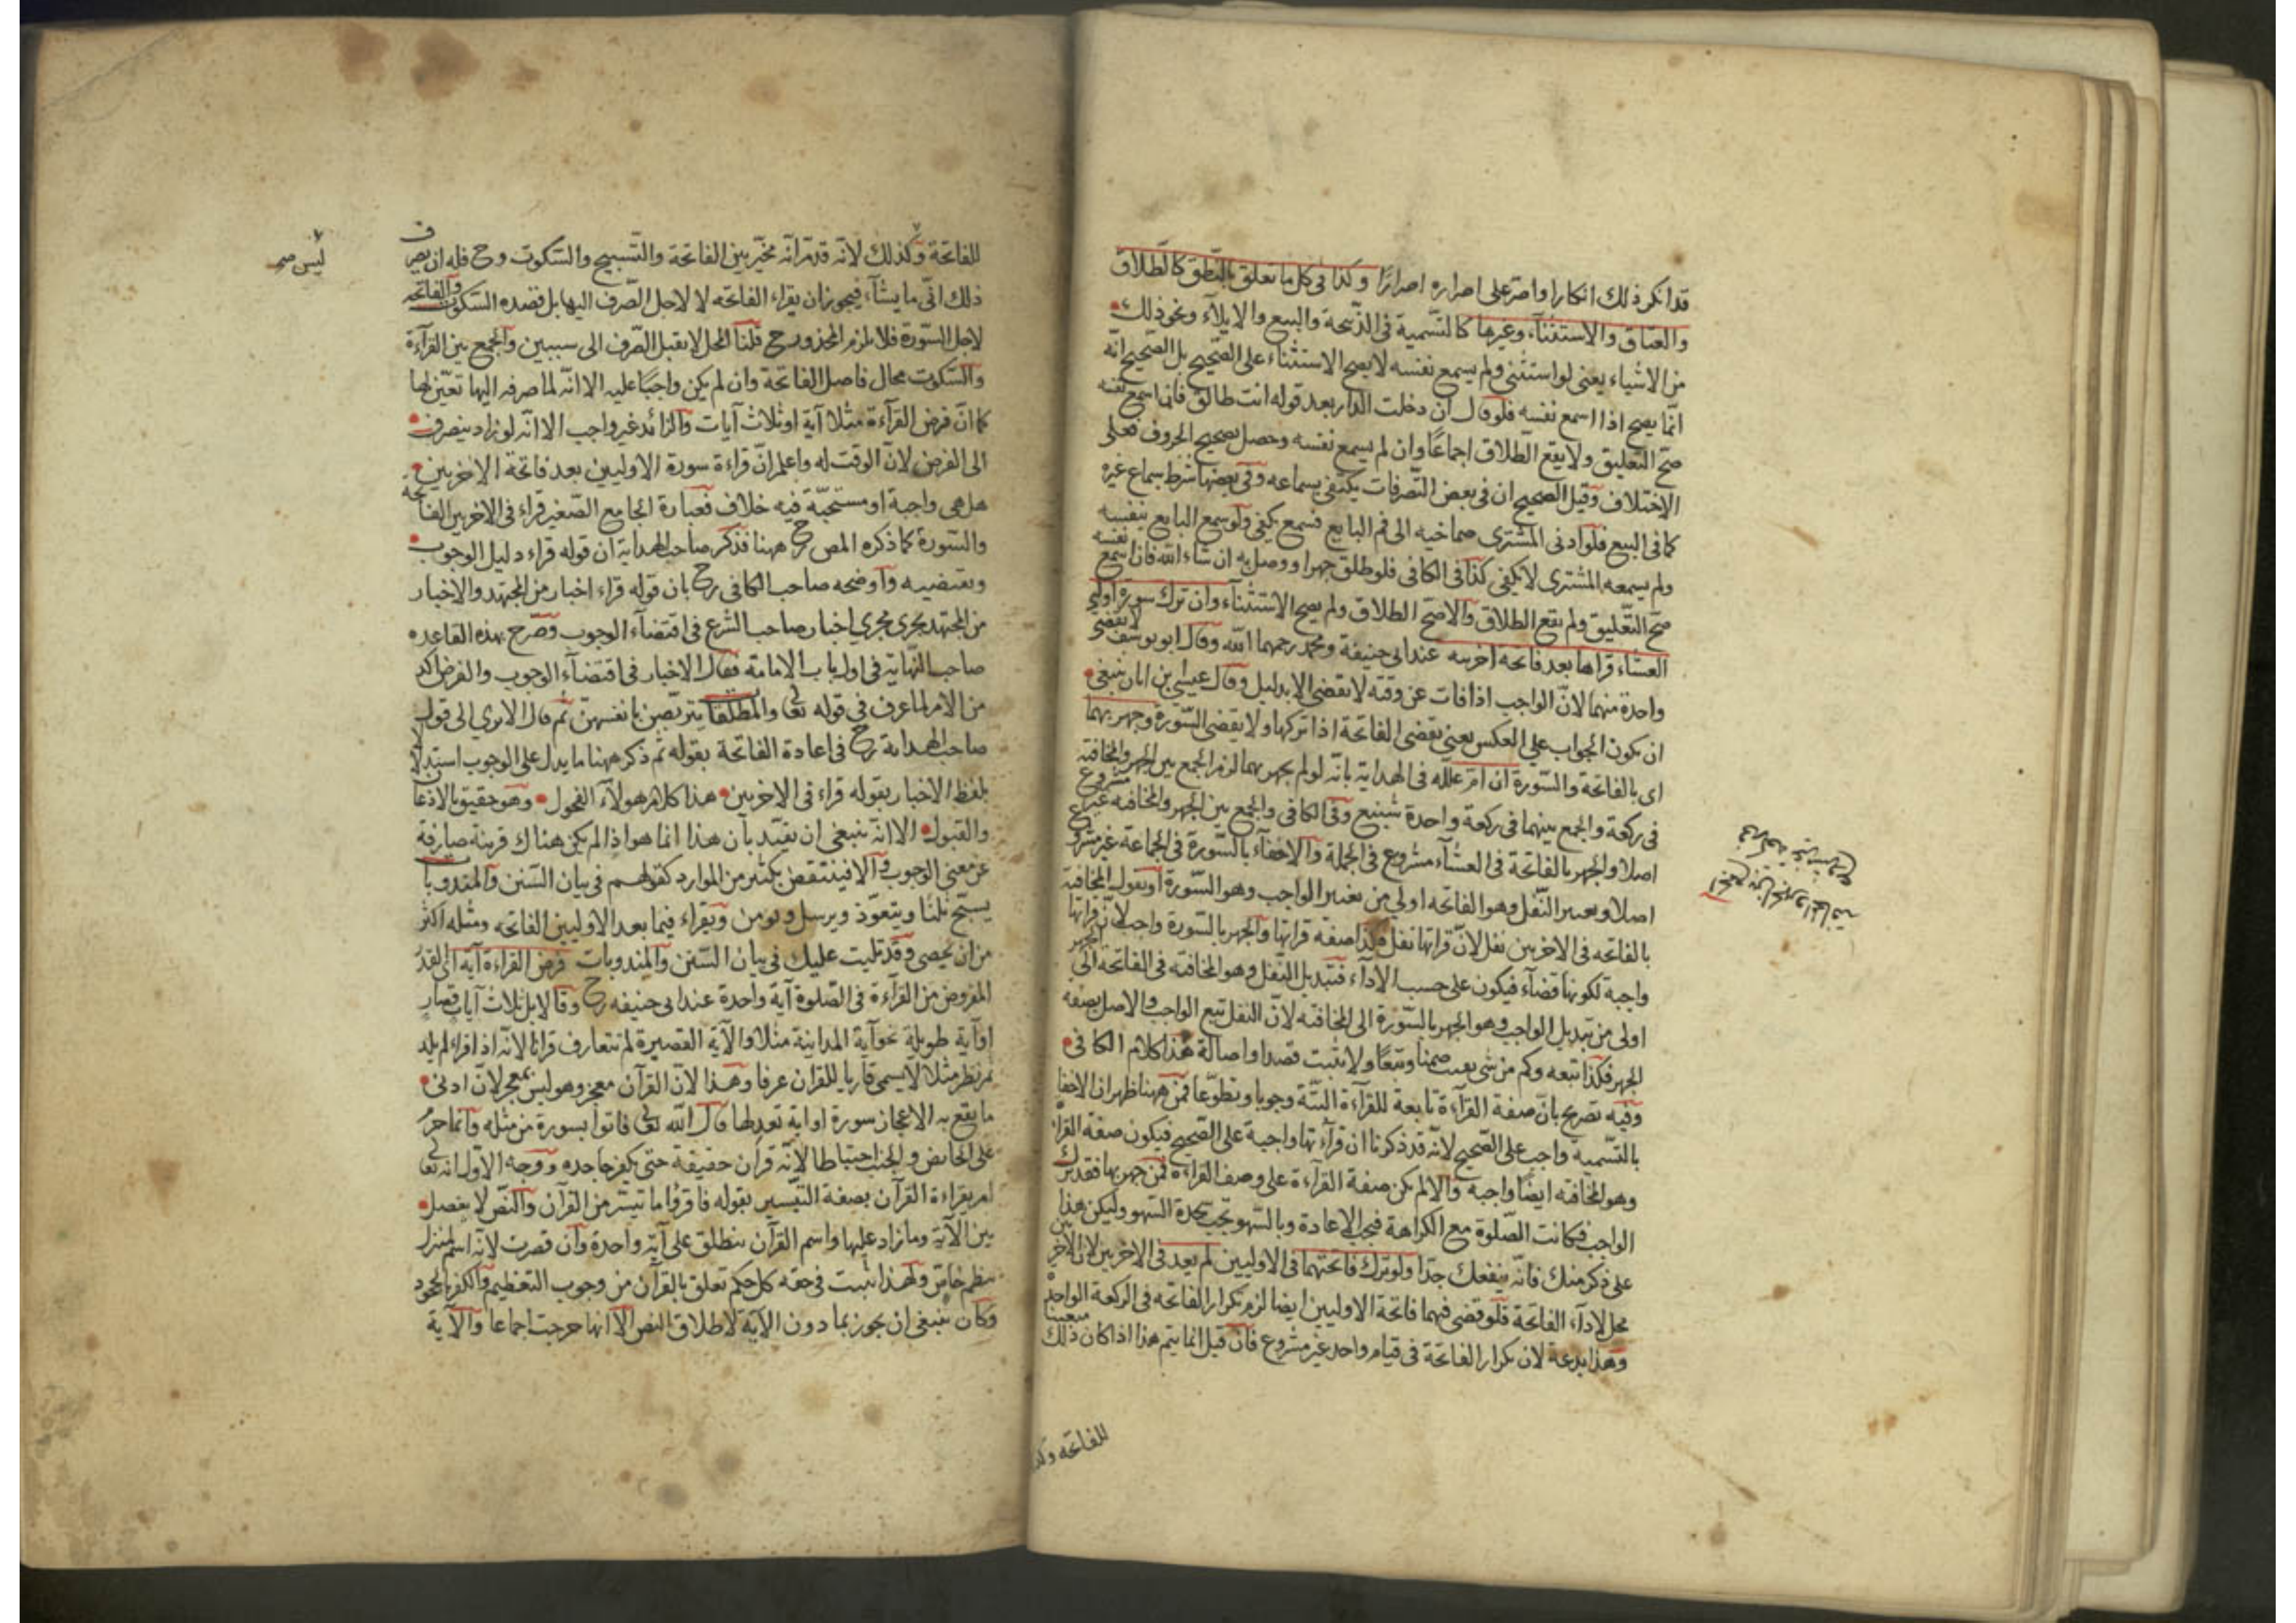 قد انكر ذلك انكارا واصر على اصراره اصرارًا وكذا فى كل ما تعلق بالنطق كالطلاق
والعتاق والاستثنآء وغيرها كالتسمية فى الذبيحة والبيع والايلآء ونحو ذلك
من الاشياء يعنى لو استثنى ولم يسمع نفسه لا يصح الاستثناء على الصّحيح بل الصّحيح انه
انّما يصح اذا اسمع نفسه فلو قال ان دخلت الدار بعد قوله انت طالق فان اسمع نفسه
صحّ التّعليق ولا يقع الطّلاق اجماعًا وان لم يسمع نفسه وحصل تصحيح الحروف فعلى
الاختلاف وقيل الصحيح ان فى بعض التّصرفات يكتفى بسماعه وفى بعضها شرط سماع غيره
كما فى البيع فلو ادنى المشترى صماخيه الى فم البايع فسمع يكفى ولو سمع البايع بنفسه
ولم يسمعه المشترى لا يكفى كذا فى الكافى فلو طلق جهرا ووصل به ان شاء الله فان اسمع نفسه
صحّ التّعليق ولم يقع الطلاق والاصحّ الطلاق ولم يصح الاستثنآء وان ترك سورة اولى
العشاء قراها بعد فاتحة اخرييه عند ابى حنيفة ومحمد رحمهما الله وقال ابو يوسف لا يقضى
واحدة منهما لانّ الواجب اذا فات عن وقته لا يقضى الا بدليل وقال عيسى بن ابان ينبغى
ان يكون الجواب على العكس يعنى يقضى الفاتحة اذا تركها ولا يقضى السّورة وجهر بهما
اى بالفاتحة والسّورة ان امّ علله فى الهداية بانّه لو لم يجهر بهما لزم الجمع بين الجهر والمخافتة
فى ركعة والجمع بينهما فى ركعة واحدة شنيع وفى الكافى والجمع بين الجهر والمخافتة غير مشروع
اصلا والجهر بالفاتحة فى العشآء مشروع فى الجملة والاخفآء بالسّورة فى الجماعة غير مشروع
اصلا وتغيير النّفل وهو الفاتحه اولى من تغيير الواجب وهو السّورة او نقول المخافتة
بالفاتحه فى الاخريين نفل لانّ قراتها نفل فكذا صفة قراتها والجهر بالسّورة واجب لانّ قراتها
واجبة لكونها قضآء فيكون على حسب الادآء فتبديل النّفل وهو المخافتة فى الفاتحة الى الجهر
اولى من تبديل الواجب وهو الجهر بالسّورة الى المخافتة لانّ النفل تبع الواجب والاصل بصفة
الجهر فكذا تبعه وكم من شى يثبت ضمنا وتبعًا ولا يثبت قصدا واصالة هذا كلام الكافى
وفيه تصريح بانّ صفة القرآءة تابعة للقرآءة البتّة وجوبا وتطوّعا فمن ههنا ظهر ان الاخفا
بالتّسمية واجب على الصّحيح لانّه قد ذكرنا ان قرآءتها واجبة على الصّحيح فيكون صفة القرآءة
وهو المخافته ايضًا واجبة والا لم يكن صفة القرآءة على وصف القرآءة فمن جهر بها فقد ترك
الواجب فكانت الصّلوة مع الكراهة فيجب الاعادة وبالسّهو تجب سجدة السّهو وليكن هذا
على ذكر منك فانّه ينفعك جدّا ولو ترك فاتحتهما فى الاوليين لم يعد فى الاخريين لان الاخريين
محل لادآء الفاتحة فلو قضى فيهما فاتحة الاوليين ايضا لزم تكرار الفاتحه فى الركعة الواحدة
وهذا بدعة لان تكرار الفاتحة فى قيام واحد غير مشروع فان قيل انما يتم هذا اذا كان ذلك متعينا
للفاتحه وكذ
للفاتحة وكذلك لانّه قد مرّ انّه مخيّر بين الفاتحة والتّسبيح والسّكوت وح فله ان يصرف
ليس صح
ذلك انّى ما يشآء فيجوز ان يقراء الفاتحه لا لاجل الصّرف اليها بل قصده السّكوت والفاتحه
لاجل السّورة فلا يلزم المحذور ح قلنا المحل لا يقبل الصّرف الى سببين والجمع بين القرآءة
والسّكوت محال فاصل الفاتحة وان لم يكن واجبًا عليه الا انّه لما صرفه اليها تعيّن لها
كما انّ فرض القرآءة مثلا آية او ثلاث آيات والزائد غير واجب الا انّه لو زاد ينصرف
الى الفرض لانّ الوقت له واعلم انّ قراءة سورة الاوليين بعد فاتحة الاخريين
هل هى واجبة او مستحبّة فيه خلاف فعبارة الجامع الصّغير قراء فى الاخريين الفاتحة
والسّورة كما ذكره المص رح ههنا فذكر صاحب الهداية ان قوله قراء دليل الوجوب
ويقتضيه واوضحه صاحب الكافى رح بان قوله قراء اخبار من المجتهد والاخبار
من المجتهد يجرى مجرى اخبار صاحب الشرع فى اقتضآء الوجوب وصرّح بهذه القاعده
صاحب النّهاية فى اول باب الامامة فقال الاخبار فى اقتضآء الوجوب والفرض اكد
من الامر لما عرف فى قوله تعا والمطلقات يتربّصن بانفسهنّ ثم قال الا يرى الى قول
صاحب الهداية رح فى اعادة الفاتحة بقوله ثم ذكر ههنا ما يدل على الوجوب استدلالا
بلفظ الاخبار بقوله قراء فى الاخريين هذا كلام هولآء الفحول وهو حقيق بالاذعان
والقبول الا انّه ينبغى ان يقيّد بان هذا انما هو اذا لم يكن هناك قرينة صارفة
عن معنى الوجوب والا فينتقض بكثير من الموارد كقولهم فى بيان السّنن والمندوبات
يسبح ثلثا ويتعوّذ ويرسل ويومن ويقراء فيما بعد الاوليين الفاتحه ومثله اكثر
من ان يحصى وقد تليت عليك فى بيان السّنن والمندوبات فرض القراءة آية اى القدر
المفروض من القرآءة فى الصّلوة آية واحدة عند ابى حنيفه رح وقالا بل ثلاث آيات قصار
او آية طويلة نحو آية المداينة مثلا والآية القصيرة لم تتعارف قرانا لانّه اذا قراء لم يلد
ثم نظر مثلا لا يسمى قاريا للقران عرفا وهذا لانّ القرآن معجز وهو ليس بمعجز لانّ ادنى
ما يقع به الاعجاز سورة او اية تعدلها قال الله تعالى فاتوا بسورة من مثله وانّما حرم
على الحائض والجنب احتياطا لانّه قران حقيقة حتى يكفر جاحده ووجه الاوّل انه تعا
امر بقراءة القرآن بصفة التّيسير بقوله فاقروا ما تيسّر من القرآن والنّص لا يفصل
بين الآية وما زاد عليها واسم القرآن ينطلق على آية واحدة وان قصرت لانّه اسم لمنزل
بنظم خاص ولهذا يثبت فى حقه كل حكم تعلق بالقرآن من وجوب التعظيم والكفر بالجحود
وكان ينبغى ان يجوز بما دون الآية لاطلاق النص الا انها خرجت اجماعا والآية